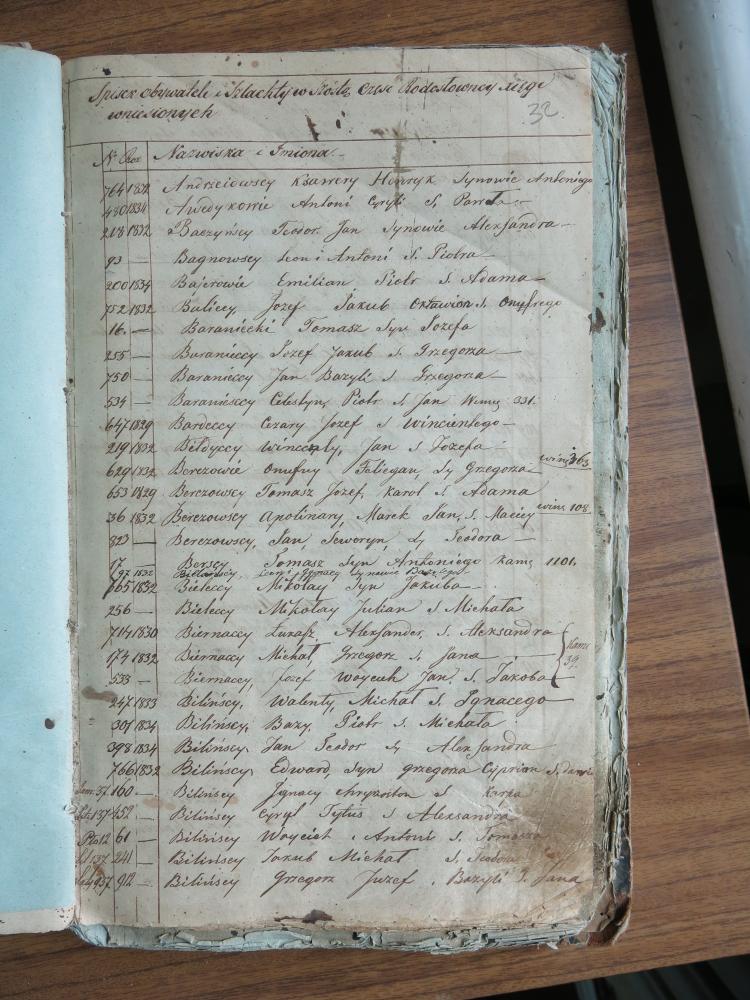 Spisek obywateli i Szlachty w Xsiążę części Rodosłowney
wniesionych
32
N Rox Nazwiska i Imiona
764 1832 Andrzeiowscy Ksawery Henryk Synowie Antoniego
480 1834 Awedykowie Antoni Cyryli S. Pawła
218 1832 Baczyńscy Teodor Jan Synowie Alexandra
93 — Bagnowscy Leon i Antoni S. Piotra
200 1834 Bajerowie Emilian Piotr S. Adama
752 1832 Baliccy Jozef Jakub Oktawian S. Onufrego
16. — Baraniecki Tomasz Syn Jozefa
255 — Baranieccy Jozef Jakub S. Grzegorza
750 — Baranieccy Jan Bazyli S. Grzegorza
534 — Baranieccy Celestyn, Piotr S. Jan 331.
647 1829 Bardeccy Cezary Jozef S Wincentego
219 1832 Bełdyccy Wincenty, Jan S Jozefa
629 1832 Berezowie Onufry Felicyan, Sy Grzegorza 363
653 1829 Berezowscy Tomasz Jozef, Karol S. Adama
36 1832 Berezowscy Apolinary, Marek Jan, S. Maciey 108
823 — Berezowscy, Jan, Seweryn, Sy Teodora
17 — Berscy Tomasz Syn Antoniego Kamę 1101.
797 1832 Bielawscy, Leon i Ignacy Synowie
665 1832 Bieleccy Mikołay Syn Jakuba
256 — Bieleccy Mikołay Julian S Michała
714 1830 Biernaccy Łukasz, Alexander, S. Aleksandra
174 1832 Biernaccy Michał, Grzegorz S. Jana Kame 39.
533 — Biernaccy, Jozef Woyciech Jan, S. Jakoba
247 1833 Bilińscy, Walenty, Michał S. Ignacego
301 1834 Bilińscy, Bazy, Piotr S. Michała
398 1834 Bilińscy, Jan Teodor Sy Alexandra
766 1832 Bilińscy, Edward, Syn Grzegorza Cyprian S.
160 — Bilińscy Jgnacy Chryzoston S Karpa
137 452 — Bilińscy Cyryl Tytus S Alexandra
12 61 — Bilińscy Woyciech i Antoni S. Tomasza
137 241 — Bilińscy Jakub Michał S. Teodora
957 912 — Bilińscy Grzegorz Juzef, Bazyli S. Jana